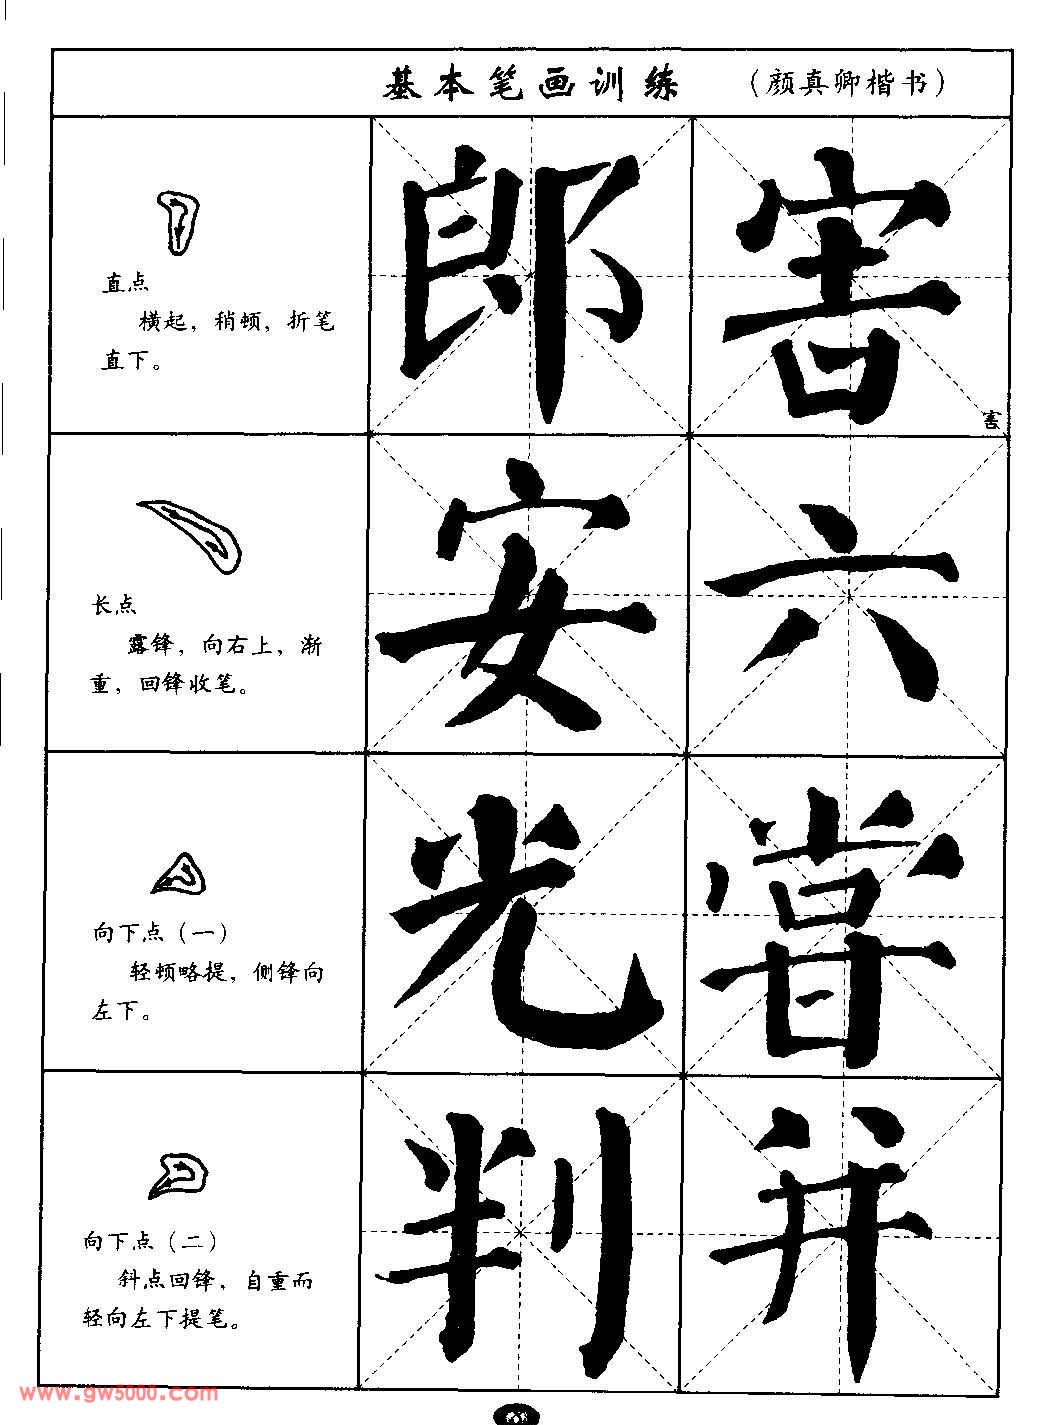 基本笔画训练 （颜真卿楷书）
直点
横起，稍顿，折笔
直下。
郎 害
害
长点
露锋，向右上，渐
重，回锋收笔。
安 六
向下点（一）
轻顿略提，侧锋向
左下。
光 當
向下点（二）
斜点回锋，自重而
轻向左下提笔。
判 并
www.gw5000.com